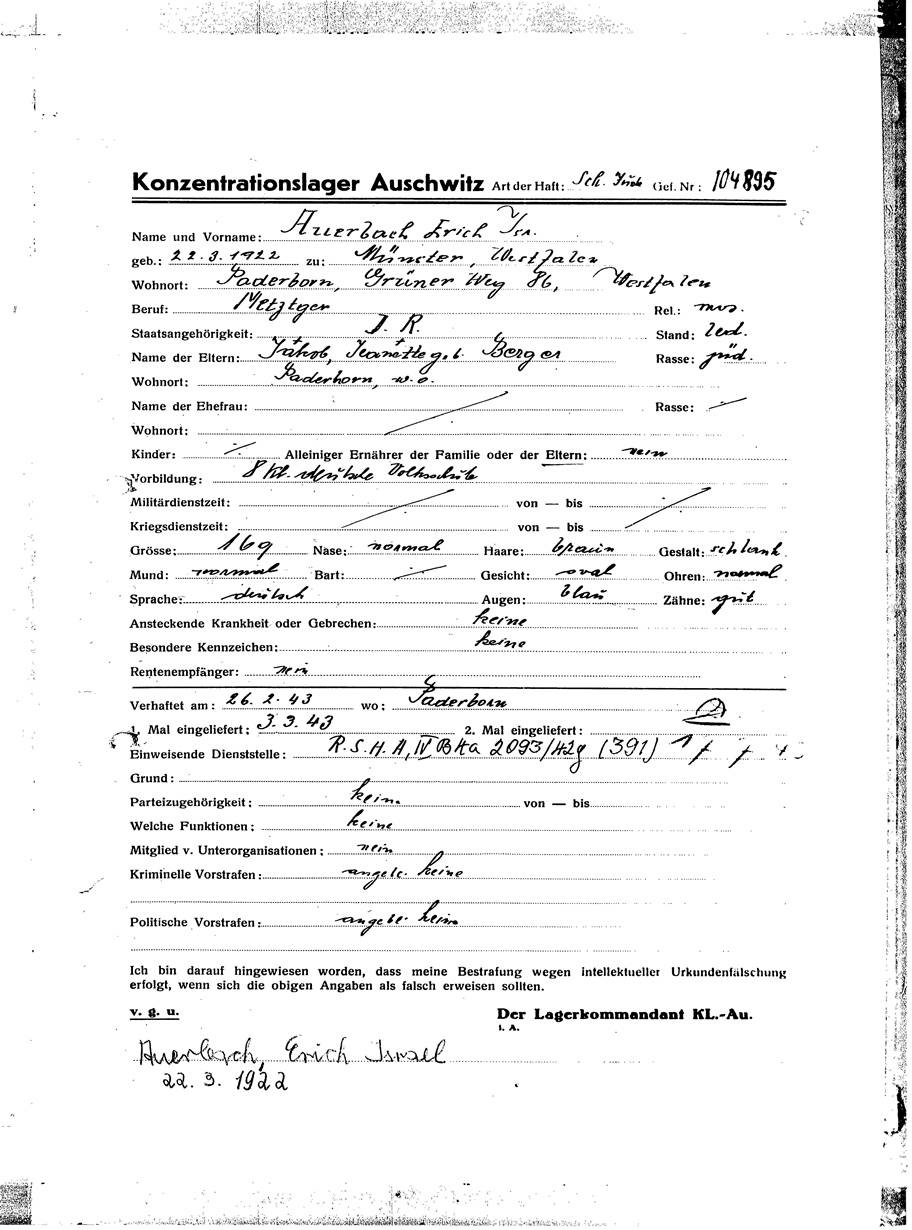 Konzentrationslager Auschwitz Art der Haft: Sch. Jude Gef. Nr: 104895
Name und Vorname: Auerbach Erich Isr.
geb.: 22.3.1922 zu: Münster, Westfalen
Wohnort: Paderborn, Grüner Weg 86, Westfalen
Beruf: Metztger Rel.: mos.
Staatsangehörigkeit: D. R. Stand: led.
Name der Eltern: Jakob, Jeanette geb. Berger Rasse: jüd.
Wohnort: Paderborn, w.o.
Name der Ehefrau: Rasse: —
Wohnort:
Kinder: ·/· Alleiniger Ernährer der Familie oder der Eltern: nein
Vorbildung: 8 Kl. deutsche Volksschule
Militärdienstzeit: von — bis
Kriegsdienstzeit: von — bis
Grösse: 169 Nase: normal Haare: braun Gestalt: schlank
Mund: normal Bart: ·/· Gesicht: oval Ohren: normal
Sprache: deutsch Augen: blau Zähne: gut
Ansteckende Krankheit oder Gebrechen: keine
Besondere Kennzeichen: keine
Rentenempfänger: nein
Verhaftet am: 26.2.43 wo: Paderborn
1. Mal eingeliefert: 3.3.43 2. Mal eingeliefert:
Einweisende Dienststelle: R.S.H.A, IV B4a 2093/42g (391)
Grund:
Parteizugehörigkeit: keine von — bis
Welche Funktionen: keine
Mitglied v. Unterorganisationen: nein
Kriminelle Vorstrafen: angebl. keine
Politische Vorstrafen: angebl. keine
Ich bin darauf hingewiesen worden, dass meine Bestrafung wegen intellektueller Urkundenfälschung
erfolgt, wenn sich die obigen Angaben als falsch erweisen sollten.
v. g. u. Der Lagerkommandant KL.-Au.
I. A.
Auerbach, Erich Israel
22.3.1922